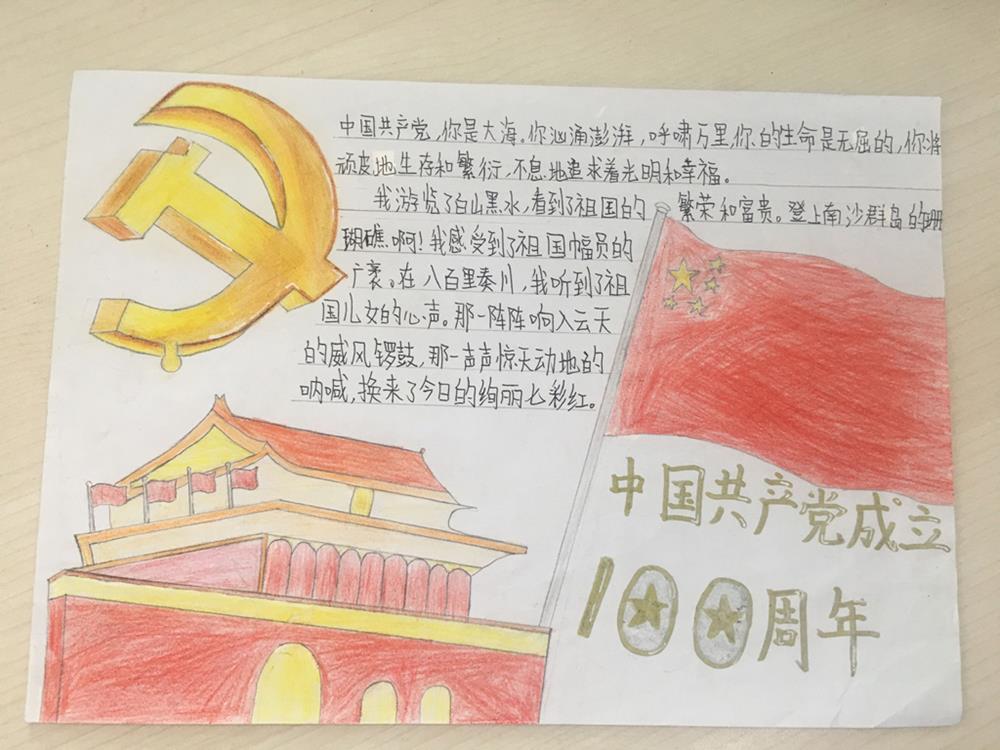 中国共产党,你是大海。你汹涌澎湃,呼啸万里,你的生命是无屈的,你将
顽皮地生存和繁衍,不息地追求着光明和幸福。
我游览了白山黑水,看到了祖国的 繁荣和富贵。登上南沙群岛的珊
瑚礁啊!我感受到了祖国幅员的
广袤。在八百里秦川,我听到了祖
国儿女的心声。那一阵阵响入云天
的威风锣鼓,那一声声惊天动地的
呐喊,换来了今日的绚丽七彩红。
中国共产党成立
100周年